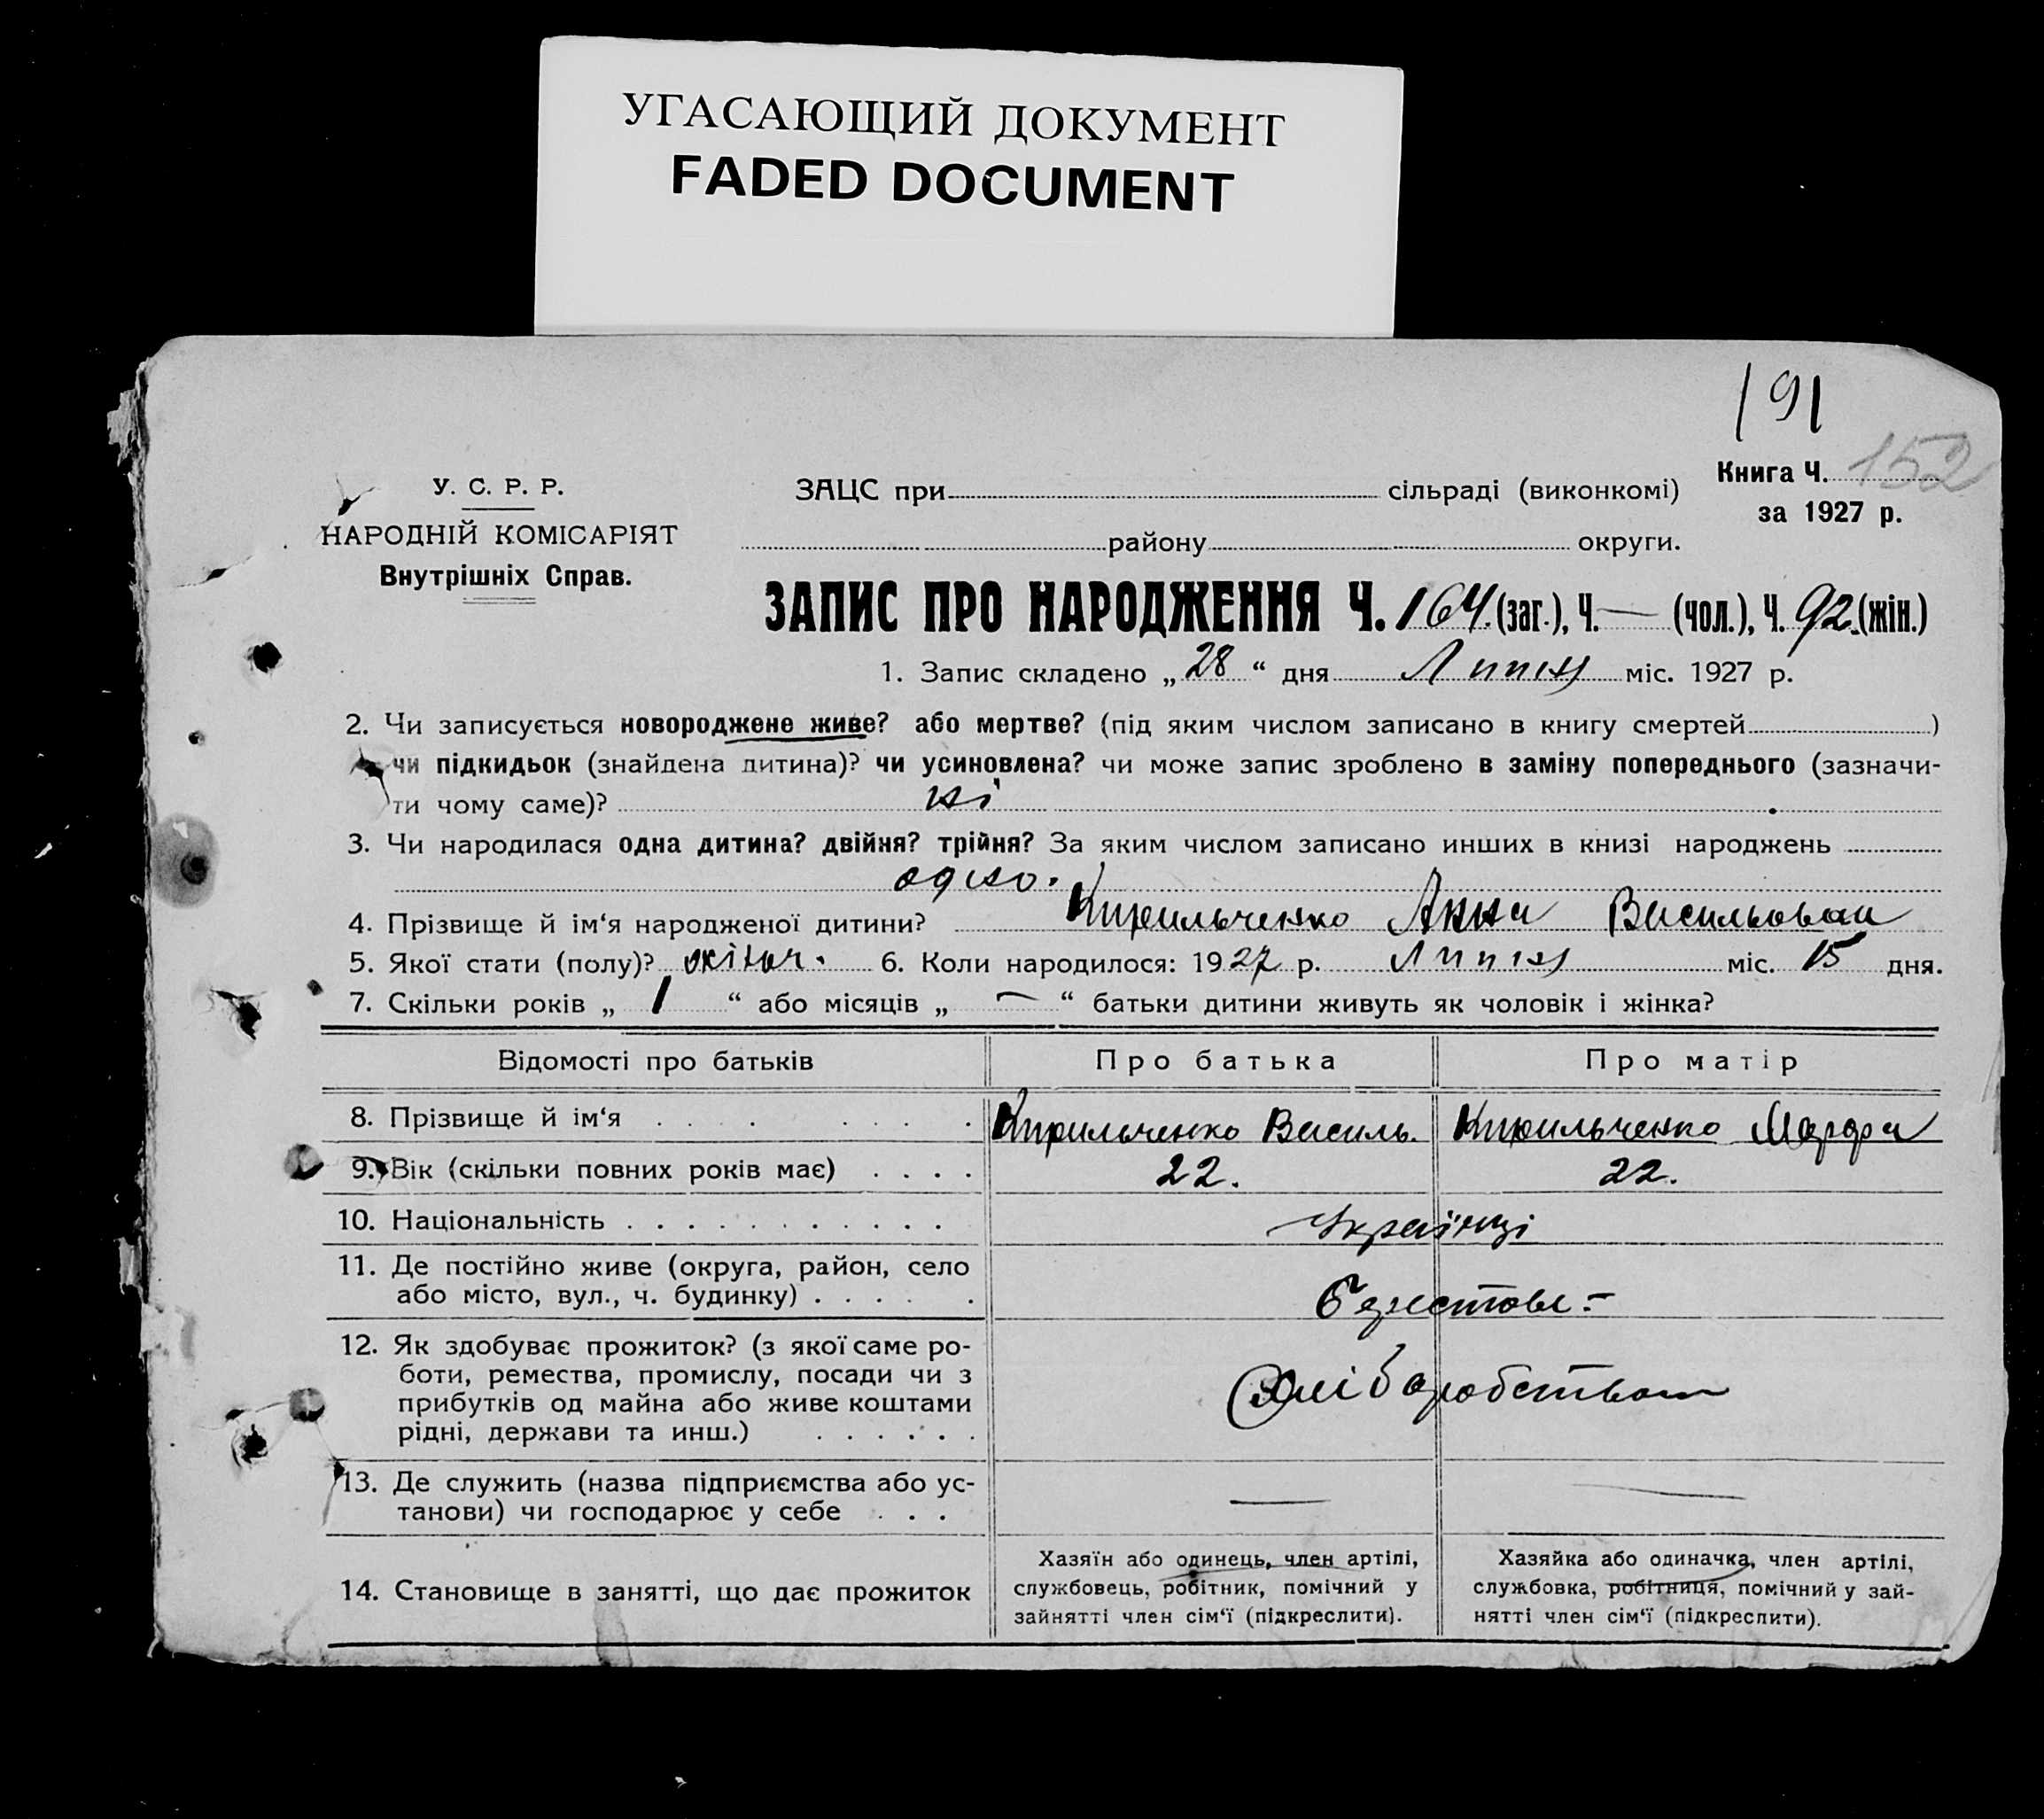 УГАСАЮЩИЙ ДОКУМЕНТ
FADED DOCUMENT
191
У. С. Р. Р.
НАРОДНІЙ КОМІСАРІЯТ
Внутрішніх Справ.
ЗАЦС при сільраді (виконкомі)
району округи.
Книга Ч. 152
за 1927 р.
ЗАПИС ПРО НАРОДЖЕННЯ Ч. 164. (заг.), Ч. — (чол.), Ч. 92. (жін.)
1. Запис складено „ 28 “ дня Липня міс. 1927 р.
2. Чи записується новороджене живе? або мертве? (під яким числом записано в книгу смертей )
чи підкидьок (знайдена дитина)? чи усиновлена? чи може запис зроблено в заміну попереднього (зазначи-
ти чому саме)? ні
3. Чи народилася одна дитина? двійня? трійня? За яким числом записано инших в книзі народжень
одно.
4. Прізвище й ім‘я народженої дитини? Кирильченко Анна Васильован
5. Якої стати (полу)? жіноч. 6. Коли народилося: 1927 р. Липня міс. 15 дня.
7. Скільки років „ 1 “ або місяців „ — “ батьки дитини живуть як чоловік і жінка?
Відомості про батьків Про батька Про матір
8. Прізвище й ім‘я . . . . . . . Кирильченко Василь. Кирильченко Марфа
9. Вік (скільки повних років має) . . . . 22. 22.
10. Національність . . . . . . . . . . . Українці
11. Де постійно живе (округа, район, село
або місто, вул., ч. будинку) . . . . .
12. Як здобуває прожиток? (з якої саме ро-
боти, ремества, промислу, посади чи з
прибутків од майна або живе коштами
рідні, держави та инш.) . . . . . .
Хліборобством
13. Де служить (назва підприємства або ус-
танови) чи господарює у себе . . . — —
14. Становище в занятті, що дає прожиток
Хазяїн або одинець, член артілі,
службовець, робітник, помічний у
зайнятті член сім‘ї (підкреслити).
Хазяйка або одиначка, член артілі,
службовка, робітниця, помічний у зай-
нятті член сім‘ї (підкреслити).